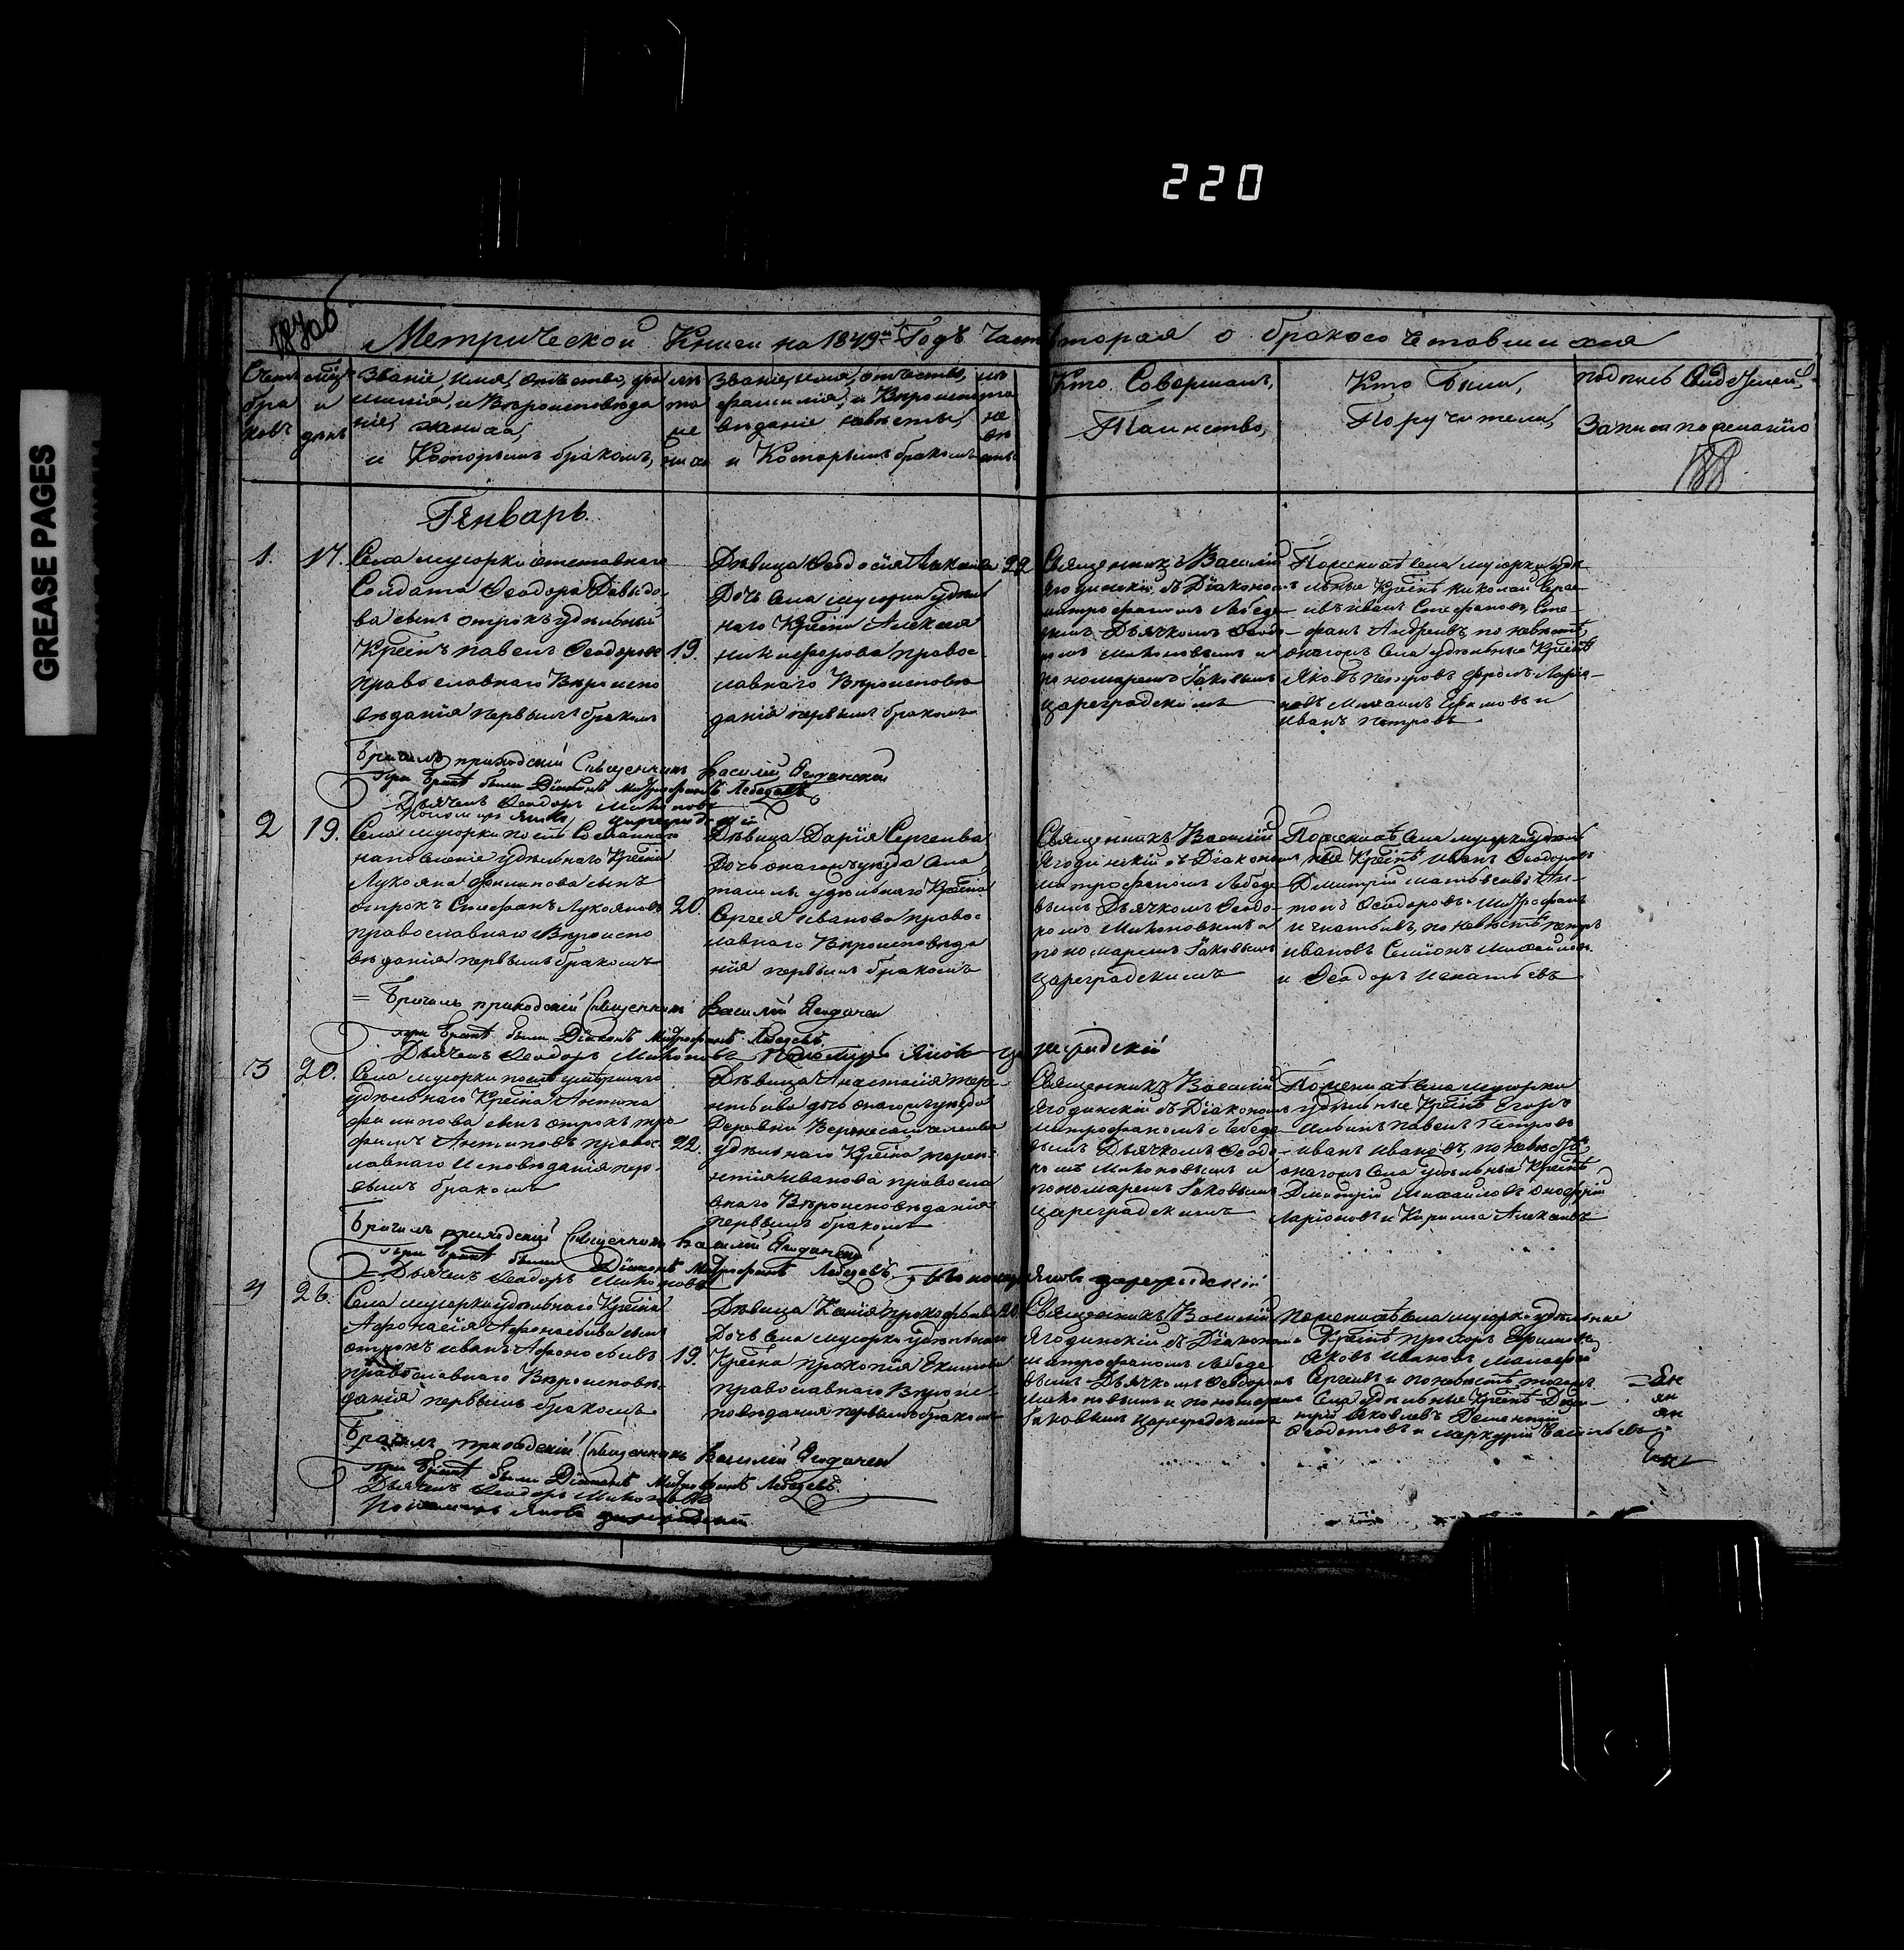 220
GREASE PAGES
Метрической Книги на 1849й Годъ Часть вторая о бракосочетавшихся
Счетъ браковъ
Мцъ и день
Званіе, имя, отчество, фа
милія, и Вѣроисповѣда
ніе, жениха,
и Которымъ бракомъ,
лѣ
та
же
ниха
Званіе, имя, отчество,
фамилія, и Вѣроиспо
вѣданіе невѣсты,
и Которымъ бракомъ
лѣ
та
не
вѣ
сты
Кто Совершалъ,
Таинство,
Кто Были,
Поручители,
подпись Свидѣтелей,
Записи по желанію
Генварь.
1.
17.
Села мусорки отставнаго
Солдата Ѳеодора Давыдо
ва сынъ отрокъ удѣльный
Крѣинъ павелъ Ѳеодоровъ
православнаго Вѣроиспо
вѣданія первымъ бракомъ
19.
Дѣвица Ѳеодосія Алексѣева
Дочь села мусорки удѣль
наго Крѣина Алексея
никифорова правос
лавнаго Вѣроисповѣ
данія первымъ бракомъ
22
Священникъ Василій
Ягодинскій съ Діакономъ
митрофаномъ Лебеде
вымъ Дьячкомъ Ѳеодо
ромъ Миконовымъ и
пономаремъ Іаковымъ
цареградскимъ
По женихѣ села мусорки удѣ
льные Крѣинѣ николай Гера
 иванъ Стефановъ, Сте
фанъ Андреевъ, по невѣстѣ
онагожъ села удѣльные Крѣинѣ
Яковъ петровъ фролъ Ларіо
новъ Михаилъ и
иванъ петровъ
Бракъ приходскій Священникъ Василій Ягодинскій
при бракѣ были Діаконъ Митрофанъ Лебедевъ
Дьячекъ Ѳеодоръ Миконовъ
Пономарь Яковъ цареградскій
2
19.
Села мусорки послѣ Сосланнаго
на поселеніе удѣльнаго Крѣина
Лукояна филипова сынъ
отрокъ Стефанъ Лукояновъ
православнаго Вѣроиспо
вѣданія первымъ бракомъ
20.
Дѣвица Дарія Сергеева
Дочь онагожъ уѣзда Села
 удѣльнаго Крѣина
Сергея иванова право
лавнаго Вѣроисповѣда
нія первымъ бракомъ
Священникъ Василій
Ягодинскій съ Діакономъ
митрофаномъ Лебеде
вымъ Дьячкомъ Ѳеодо
ромъ Миконовымъ и
пономаремъ Іаковымъ
цареградскимъ
По женихѣ Села мусорки удѣль
ные Крѣинѣ иванъ Ѳеодоровъ
Димитрій матвеевъ Ан
тонъ Ѳеодоровъ Митрофанъ
игнатьевъ, по невѣстѣ петръ
ивановъ Семіонъ михайловъ
и Ѳеодоръ игнатьевъ
Бракъ приходскій Священникъ Василій Ягодинскій
при бракѣ были Діаконъ Митрофанъ Лебедевъ
Дьячекъ Ѳеодоръ Миконовъ Пономарь Яковъ цареградскій
3
20.
Села мусорки послѣ умершаго
удѣльнаго Крѣина Антипа
филипова сынъ отрокъ тро
фимъ Антиповъ правос
лавнаго исповѣданія пер
вымъ бракомъ
22.
Дѣвица Анастасія тере
нтьева дочь онагожъ уѣзда
Деревни
удѣльнаго Крѣина терен
нтія иванова правосла
внаго Вѣроисповѣданія
первымъ бракомъ
Священникъ Василій
Ягодинскій съ Діакономъ
митрофаномъ Лебеде
вымъ Дьячкомъ Ѳеодо
ромъ Миконовымъ и
пономаремъ Іаковымъ
цареградскимъ
По женихѣ села мусорки
удѣльные Крѣинѣ Егоръ
 павелъ петровъ
иванъ ивановъ, по невѣстѣ
онагожъ села удѣльные Крѣинѣ
Димитрій михайловъ онофрій
Ларіоновъ и Кирилла Алексеевъ
Бракъ приходскій Священникъ Василій Ягодинскій
при бракѣ были Діаконъ Митрофанъ Лебедевъ
Дьячекъ Ѳеодоръ Миконовъ Пономарь Яковъ цареградскій
4
26.
Села мусорки удѣльнаго Крѣина
Афонасія Афонасьева сынъ
отрокъ иванъ Афонасьевъ
православнаго Вѣроисповѣ
данія первымъ бракомъ
19.
Дѣвица прокофьева
Дочь села мусорки удѣльнаго
Крѣина прокопія Екимова
православнаго Вѣроис
повѣданія первымъ бракомъ
20
Священникъ Василій
Ягодинскій съ Діакономъ
митрофаномъ Лебеде
вымъ Дьячкомъ Ѳеодоромъ
Миконовымъ и пономаремъ
Іаковымъ Цареградскимъ
по женихѣ села мусорки удѣльные
Крѣинѣ прохоръ Ефимовъ
Яковъ ивановъ
Сергеевъ и по невѣстѣ тогожъ
Села удѣльные Крѣинѣ Дми
трій Яковлевъ Дементій
Ѳедотовъ и меркурій Васильевъ
Бракъ приходскій Священникъ Василій Ягодинскій
при бракѣ были Діаконъ Митрофанъ Лебедевъ
Дьячекъ Ѳеодоръ Миконовъ
Пономарь Яковъ цареградскій